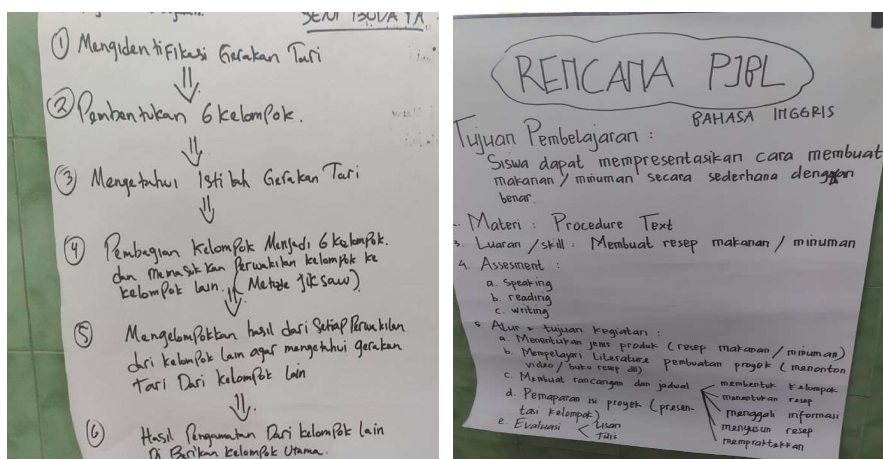 SENI BUDAYA
① Mengidentifikasi Gerakan Tari
② Pembentukan 6 kelompok.
③ Mengetahui Istilah Gerakan Tari
④ Pembagian Kelompok Menjadi 6 kelompok.
dan Memasukkan Perwakilan kelompok ke
kelompok lain. (Metode Jiksaw)
⑤ Mengelompokkan hasil dari Setiap Perwakilan
dari kelompok lain agar mengetahui gerakan
Tari Dari kelompok lain
⑥ Hasil Pengamatan Dari kelompok lain
Di Berikan kelompok Utama.
RENCANA PJBL
BAHASA INGGRIS
Tujuan Pembelajaran :
Siswa dapat mempresentasikan cara membuat
makanan / minuman secara sederhana dengan
benar.
Materi : Procedure Text
3. Luaran / skill : Membuat resep makanan / minuman
4. Assesment :
a. Speaking
b. reading
c. writing
5. Alur + tujuan kegiatan :
a. Menentukan jenis produk (resep makanan / minuman)
b. Mempelajari Literature pembuatan proyek (menonton
video / buku resep dll)
c. Membuat rancangan dan jadwal
membentuk kelompok
menentukan resep
menggali informasi
menyusun resep
mempraktekkan
d. Pemaparan isi proyek (presen-
tasi kelompok)
e. Evaluasi
Lisan
Tulis